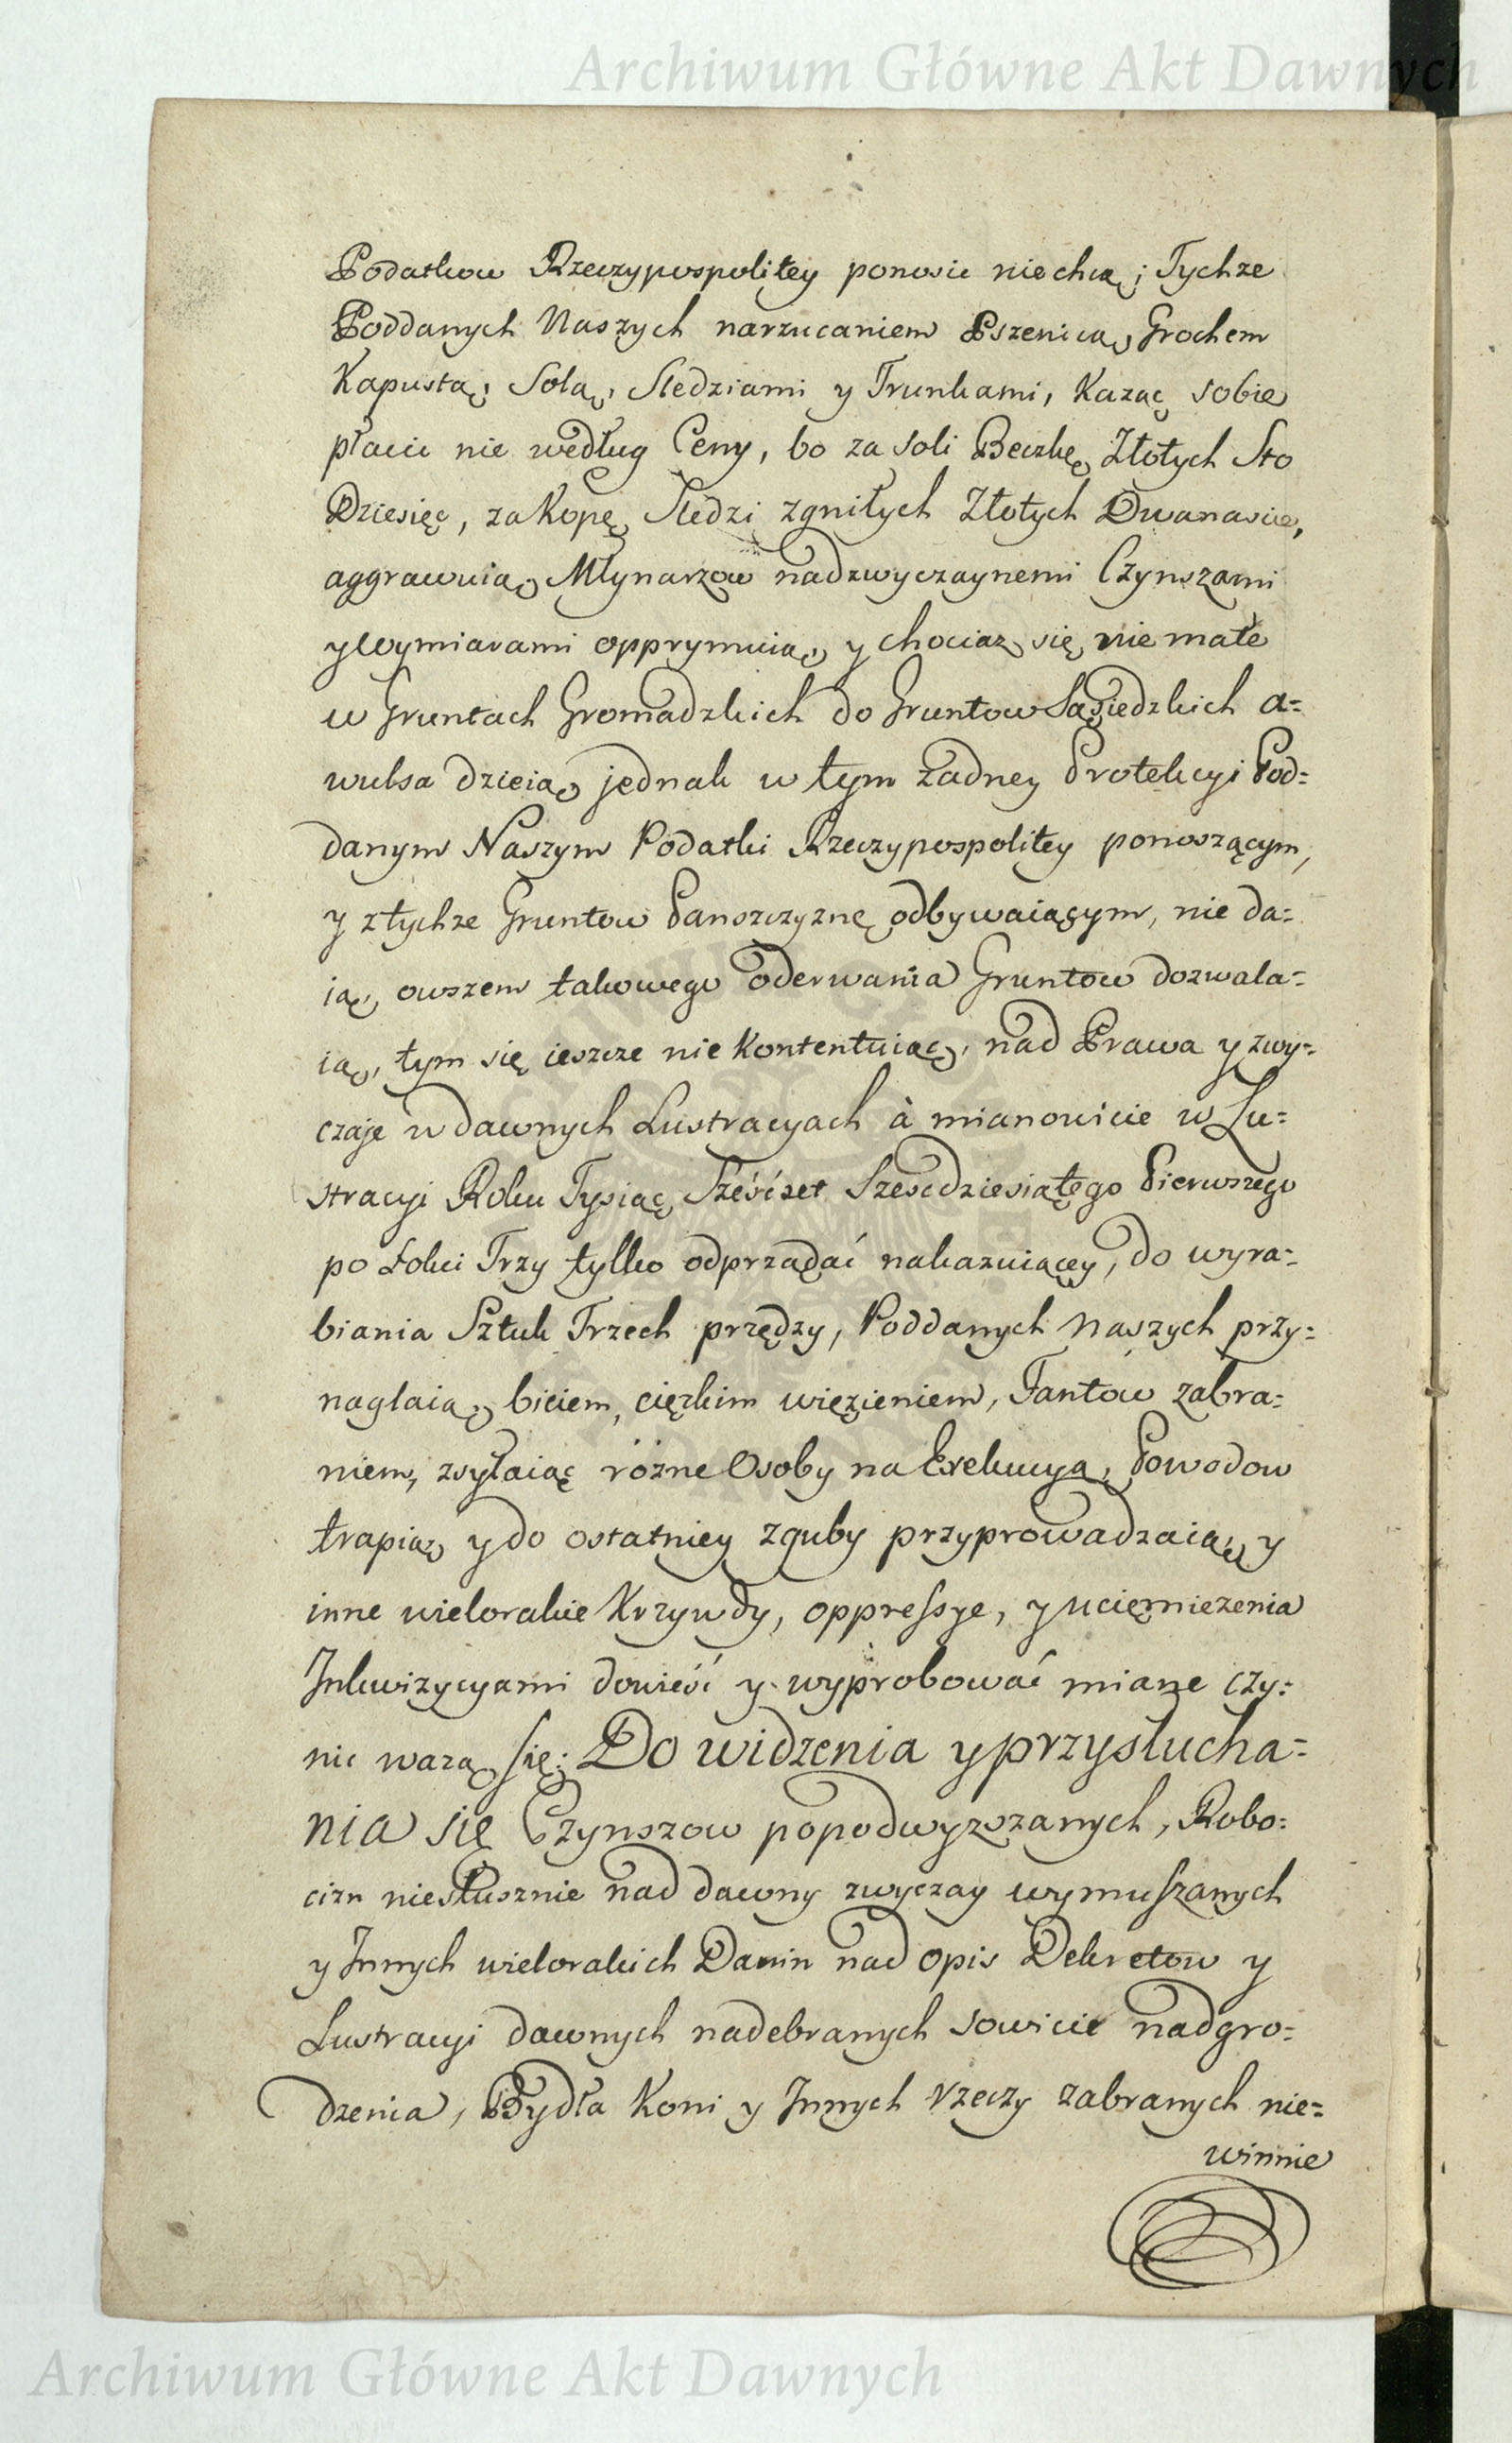 Archiwum Główne Akt Dawnych
Podatkow Rzeczypospolitey ponosic niechcą; Tychze
Poddanych Naszych narzucaniem Pszenicą, Grochem
Kapustą, Solą, Sledziami y Trunkami, Kaząc sobie
płacic nie według Ceny, bo za Soli Beczkę Złotych Sto
Dziesięc, za Kopę Sledzi zgniłych Złotych Dwanascie,
aggrawuią, Młynarzow nadzwyczaynemi Czynszami
y Wymiarami opprymuią, y chociaz się nie małe
w Gruntach Gromadzkich do Gruntow Sąsiedzkich a=
wulsa dzieią, jednak w tym zadney Protekcyi Pod=
danym Naszym Podatki Rzeczypospolitey ponoszącym,
y z tychze Gruntow Panszczyznę odbywaiącym, nie da=
ią, owszem takowego oderwania Gruntow dozwala=
ią, tym się ieszcze nie Kontentuiąc, nad Prawa y zwy=
czaje w dawnych Lustracyach à mianowicie w Lu=
stracyi Roku Tysiąc Sześćset Szescdziesiątego Pierwszego
po Łokci Trzy tylko odprządać nakazuiącey, do wyra=
biania Sztuk Trzech przędzy, Poddanych Naszych przy=
naglaią, biciem, cięzkim więzieniem, Fantów zabra=
niem, zsyłaiąc różne Osoby na Exekucyą, Powodow
trapią, y do ostatniey zguby przyprowadzaią, y
inne wielorakie Krzywdy, oppressye, y uciemiezenia
Inkwizycyami dowieść y wyprobować miane czy=
nic wazą się: Do widzenia y przysłucha=
nia się Czynszow popodwyzszanych, Robo=
cizn niesłusznie nad dawny zwyczay wymuszanych
y Innych wielorakich Danin nad opis Dekretow y
Lustracyi dawnych nadebranych sowicie nadgro=
dzenia, Bydła Koni y Innych rzeczy zabranych nie=
winnie
Archiwum Główne Akt Dawnych